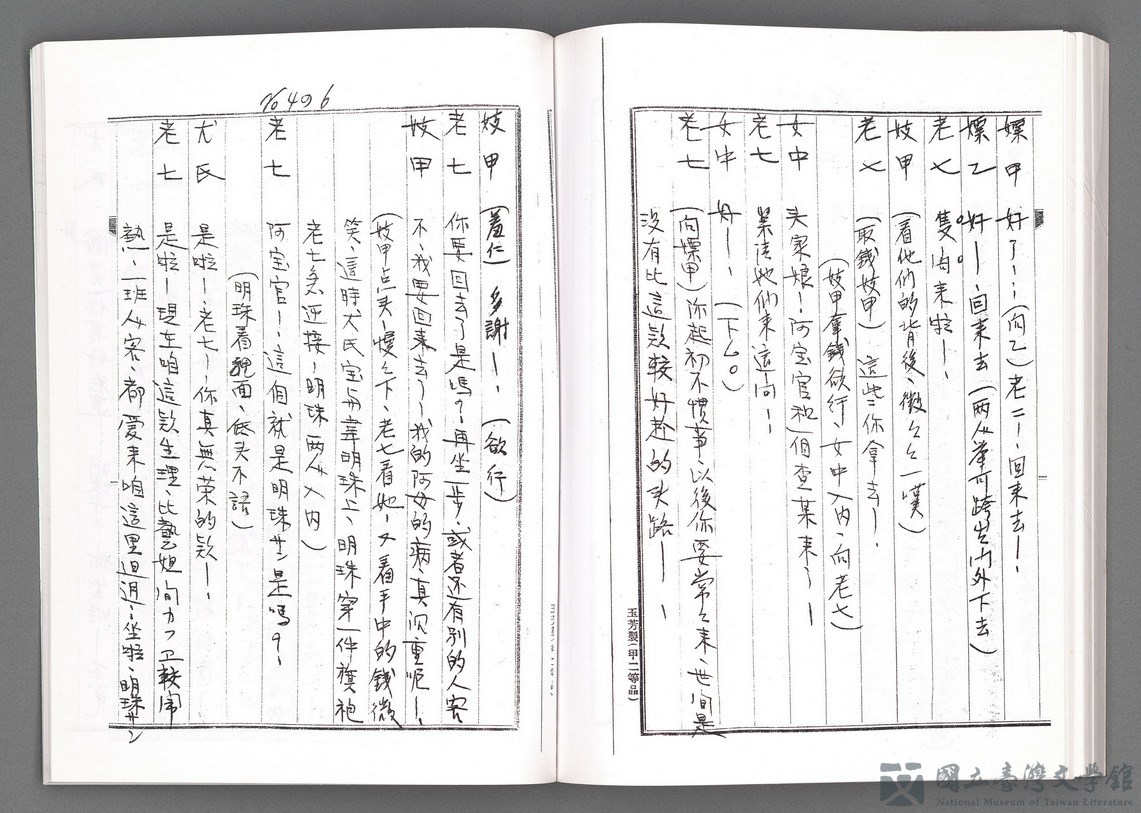 嫖甲　好了！…（向乙）老二！、回來去！
嫖乙　好！回來去（兩人 跨出門外下去）
老七　隻。肉。來啦！、
妓甲　（看他們的背後、微々一嘆）
老七　（取錢妓甲）這些你拿去！、
（妓甲拿錢欲行、女中入內、向老七）
女中　头家娘！阿宝官和一個查某來了！
老七　 請她們來這间！
女中　好！、（下厶。）
老七　（向嫖甲）你起初不慣事、以後你要常々來、世间是
沒有比這款較好趁的头路！！
玉芳製（甲二等品）
No 406
妓甲　（羞仁）多謝！、（欲行）
老七　你要回去了是嗎？再坐一步、或者还有别的人客
妓甲　不、我要回來去了！我的阿母的病、真沉重呢！、
（妓甲点头！慢々下、老七看她！又看手中的錢、微
笑、這時尤氏宝 韋明珠上、明珠穿一件旗袍
老七急迎接！明珠兩人入内）
老七　阿宝官！、這個就是明珠サン是嗎？！
（明珠着 面、底头不語）
尤氏　是啦！、老七！你真無荣的款！、
老七　是啦！現在咱這款生理、比藝妲间カフエ較鬧
熱、一班人客、都愛來咱這里 、坐啦、明珠サン
國立臺灣文學館
National Museum of Taiwan Literature